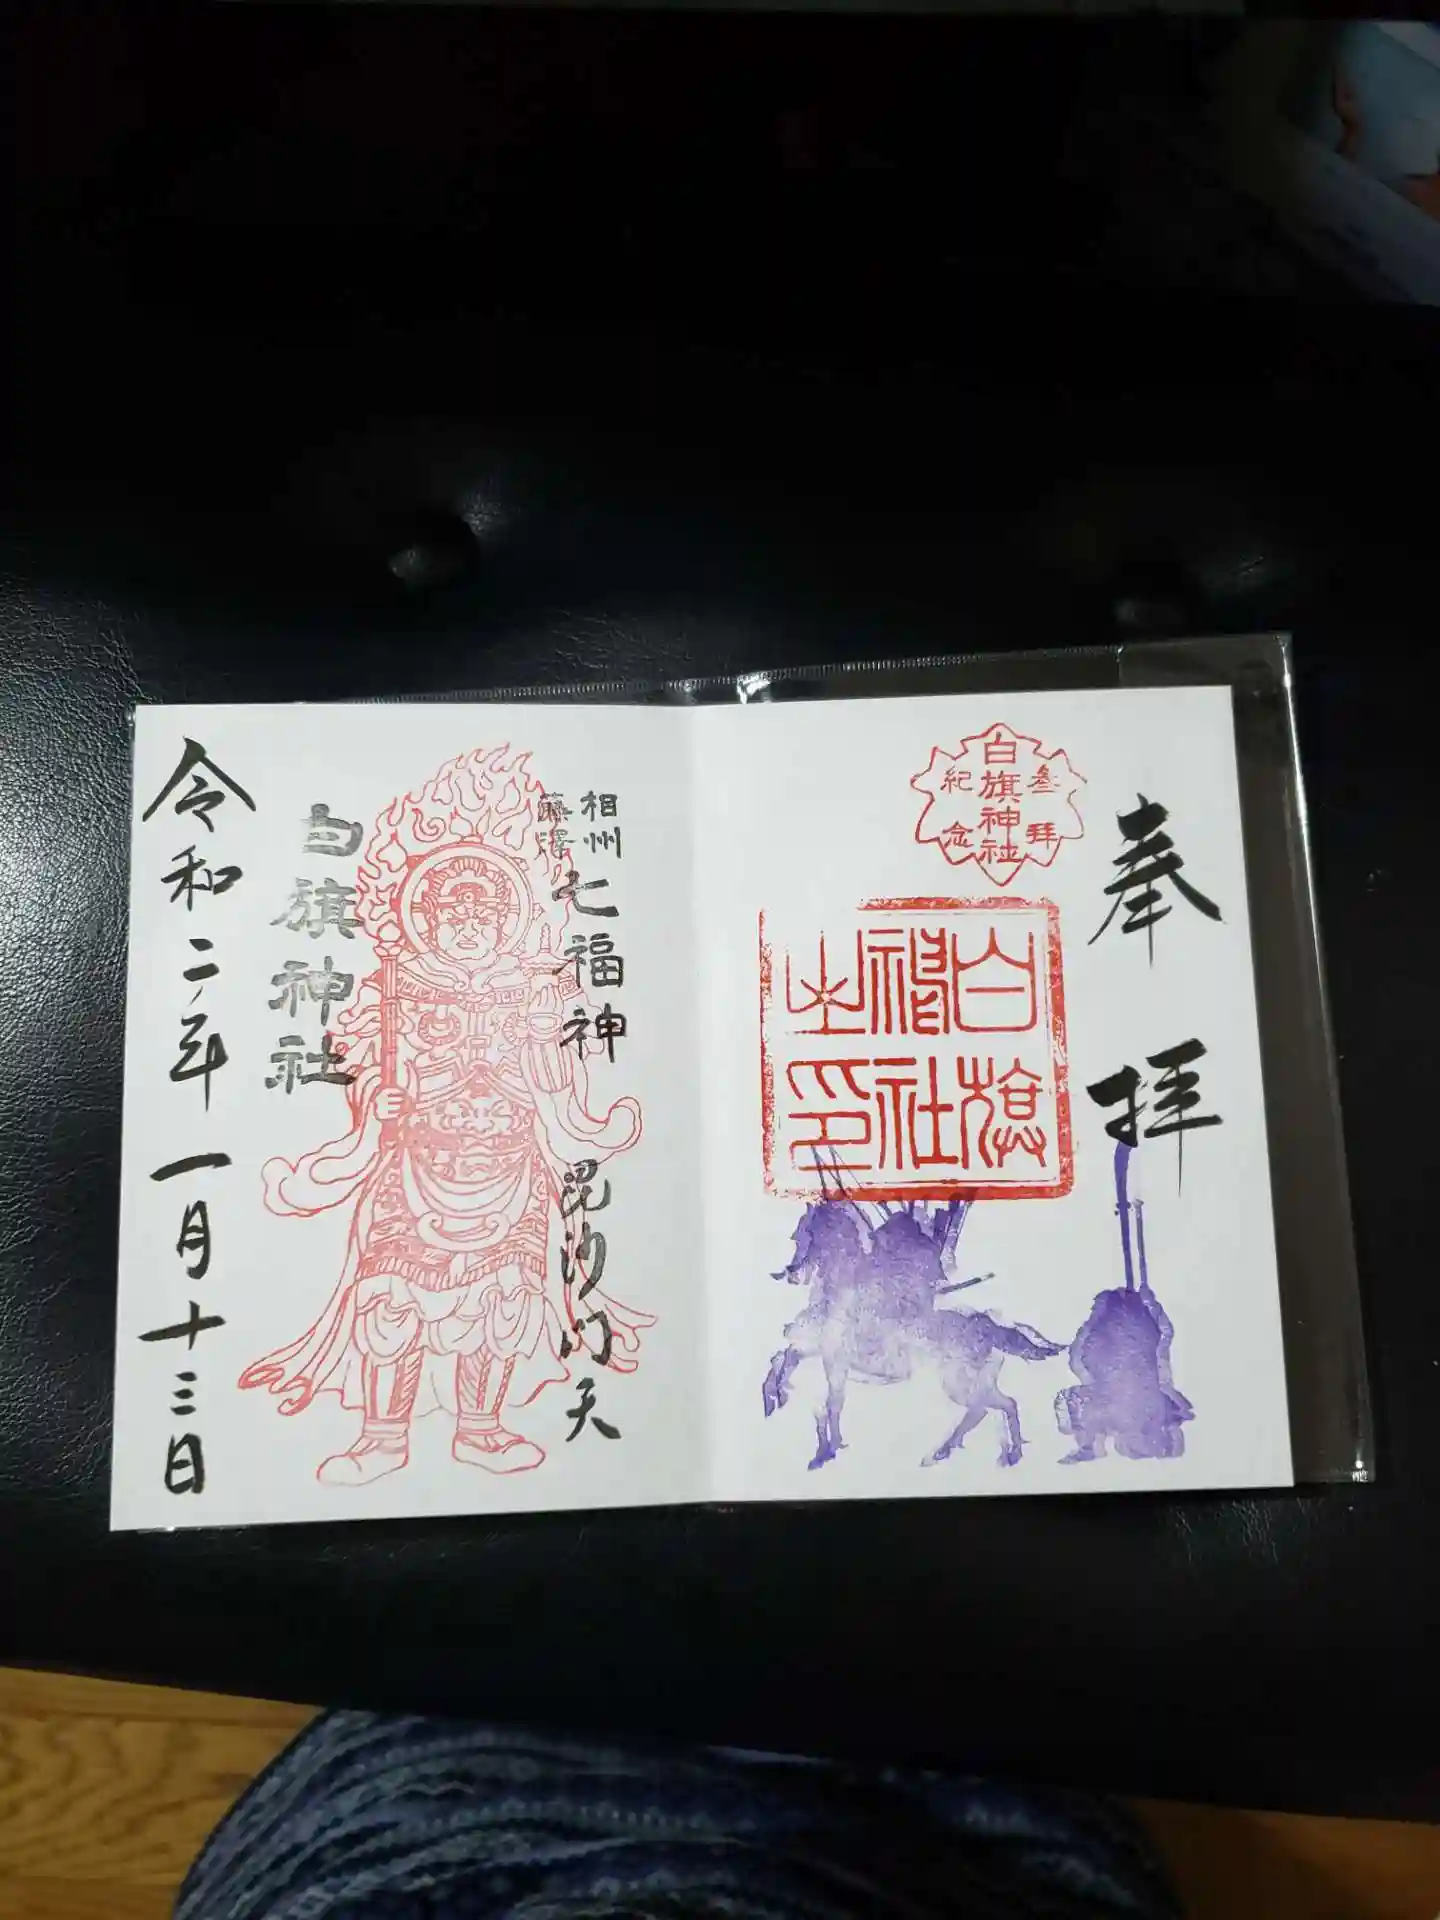 奉拝
白旗神社
参拝
紀念
白旗
神社
之印
相州
藤澤
七福神
毘沙門天
白旗神社
令和二年一月十三日